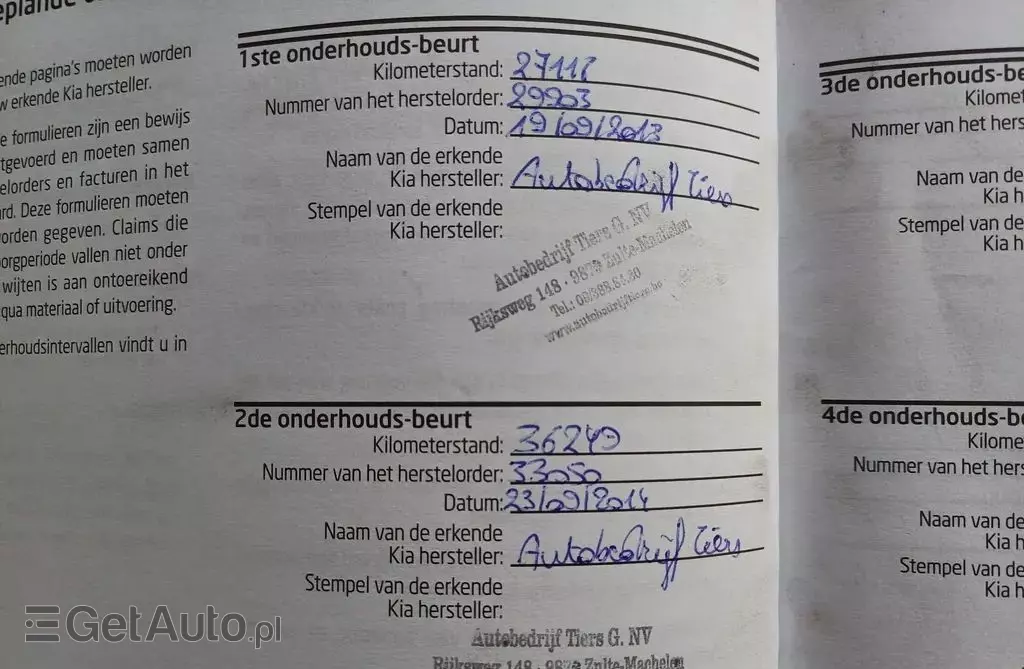 eplande o
ende pagina's moeten worden
w erkende Kia hersteller.
e formulieren zijn een bewijs
tgevoerd en moeten samen
elorders en facturen in het
rd. Deze formulieren moeten
orden gegeven. Claims die
orgperiode vallen niet onder
wijten is aan ontoereikend
qua materiaal of uitvoering.
erhoudsintervallen vindt u in
1ste onderhouds-beurt
Kilometerstand:
Nummer van het herstelorder: 29903
Datum: 19/09/2013
Naam van de erkende
Kia hersteller: Autobedrijf Tiers
Stempel van de erkende
Kia hersteller:
Autobedrijf Tiers G. NV
Rijksweg 148 - 9870 Zulte-Machelen
Tel.:
www.autobedrijftiers.be
2de onderhouds-beurt
Kilometerstand: 36249
Nummer van het herstelorder: 33050
Datum: 23/09/2014
Naam van de erkende
Kia hersteller: Autobedrijf Tiers
Stempel van de erkende
Kia hersteller:
Autobedrijf Tiers G. NV
Rijksweg 148 - 9870 Zulte-Machelen
3de onderhouds-be
Kilomet
Nummer van het hers
Naam van de
Kia h
Stempel van de
Kia h
4de onderhouds-be
Kilome
Nummer van het hers
Naam van de
Kia h
Stempel van de
Kia h
GetAuto.pl